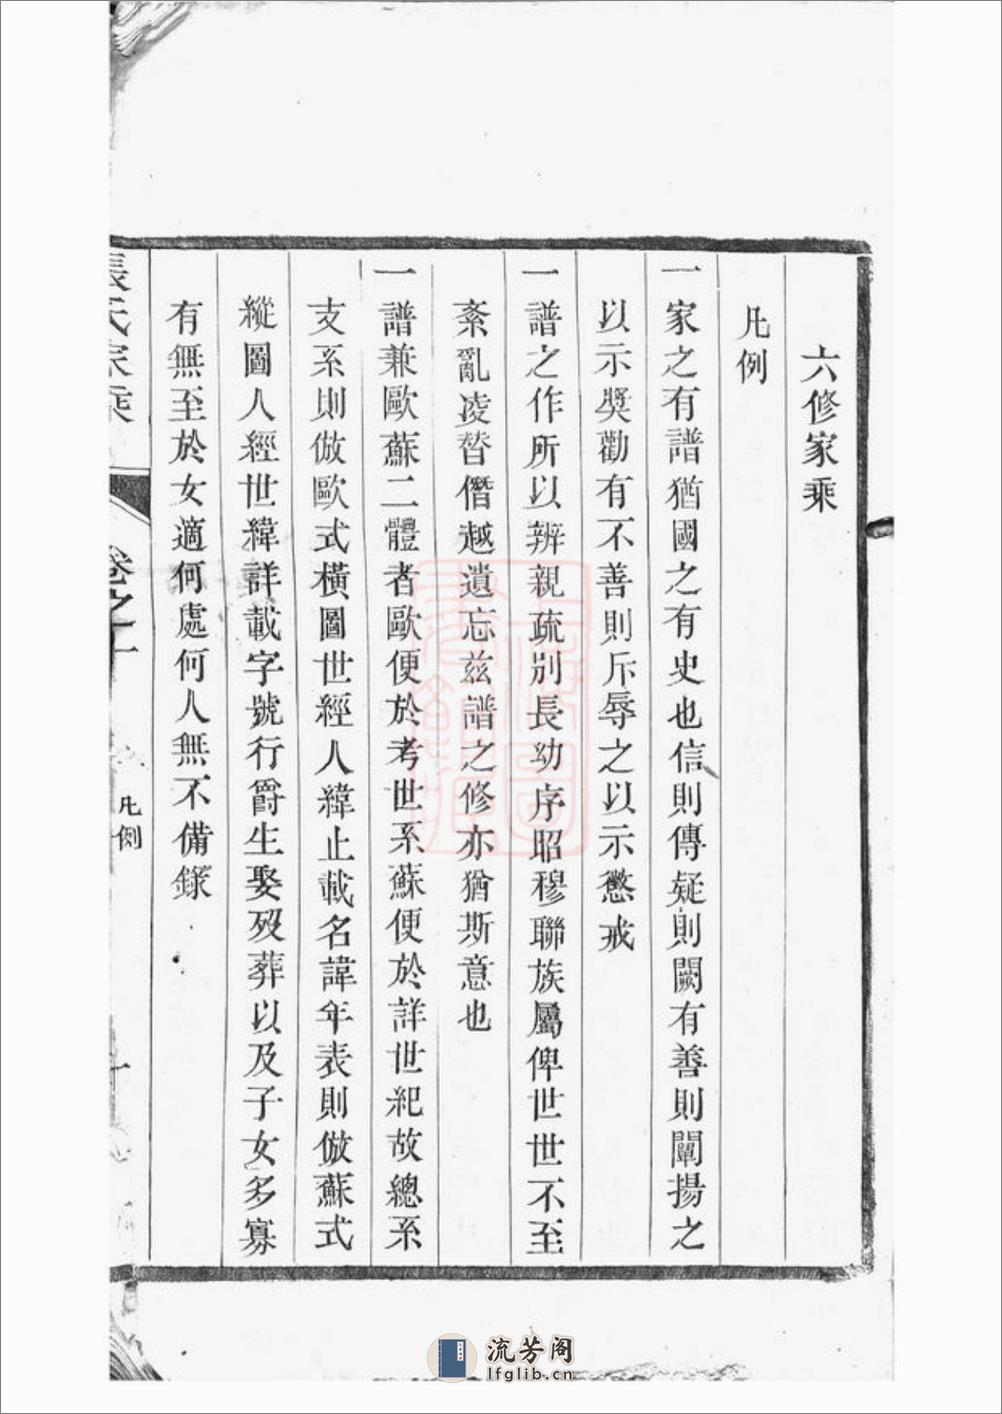 六修家乘
凡例
一家之有譜猶國之有史也信則傳疑則闕有善則闡揚之
以示獎勸有不善則斥辱之以示懲戒
一譜之作所以辨親疏別長幼序昭穆聯族屬俾世世不至
紊亂凌替僭越遺忘茲譜之修亦猶斯意也
一譜兼歐蘇二體者歐便於考世系蘇便於詳世紀故總系
支系則倣歐式橫圖世經人緯止載名諱年表則倣蘇式
縱圖人經世緯詳載字號行爵生娶歿葬以及子女多寡
有無至於女適何處何人無不備錄
張氏家乘
卷之十
凡例
一
上海圖
書館藏
流芳阁
lfglib.cn